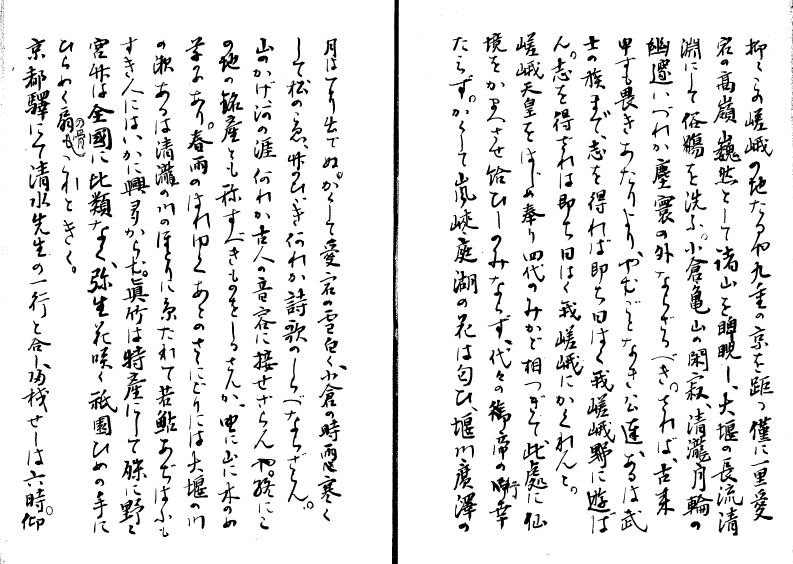 抑々この嵯峨の地たるや九重の京を距つ僅に一里愛
宕の高嶺巍然として諸山を睥睨し、大堰の長流清
淵にして俗腸を洗ふ。小倉亀山の閑寂、清瀧月輪の
幽邃いづれか塵寰の外ならざるべき。されば、古来
申すも畏きあたりより、やむごとなき公達、あるは武
士の族まで、志を得れば即ち曰はく我嵯峨野に遊ば
ん。志を得ざれば即ち曰はく我嵯峨にかくれんと。
嵯峨天皇をはじめ奉り四代のみかど相つぎて此處に仙
境をかまへさせ給ひしのみならず、代々の御帝の行幸
たらず。かくして嵐峡の庭湖の花は匂ひ、堰川廣澤の
月はてり出でぬ。かくして愛宕の雪白く、小倉の時雨寒く
して松のこゑ、竹のひゞき何れか詩歌のしらべならざらん。
山のかげ、河の涯何れか古人の音容に接せざらんや。終にこ
の地の銘産とも称すべきものをしるさんか、里に山に木のめ
芽あり。春雨のはれゆくあとのさゝにごりには大堰の川
の瀬あるは清瀧の川のほとりに糸たれて若鮎あぢはふも
すき人にはいかに興多からむ。眞竹は特産にして殊に野々
宮竹は全國に比類なく、弥生花咲く祇園ひめの手に
ひらめく扇の骨もこれときく。
京都驛にて清水先生の一行と合し帰校せしは六時。仰